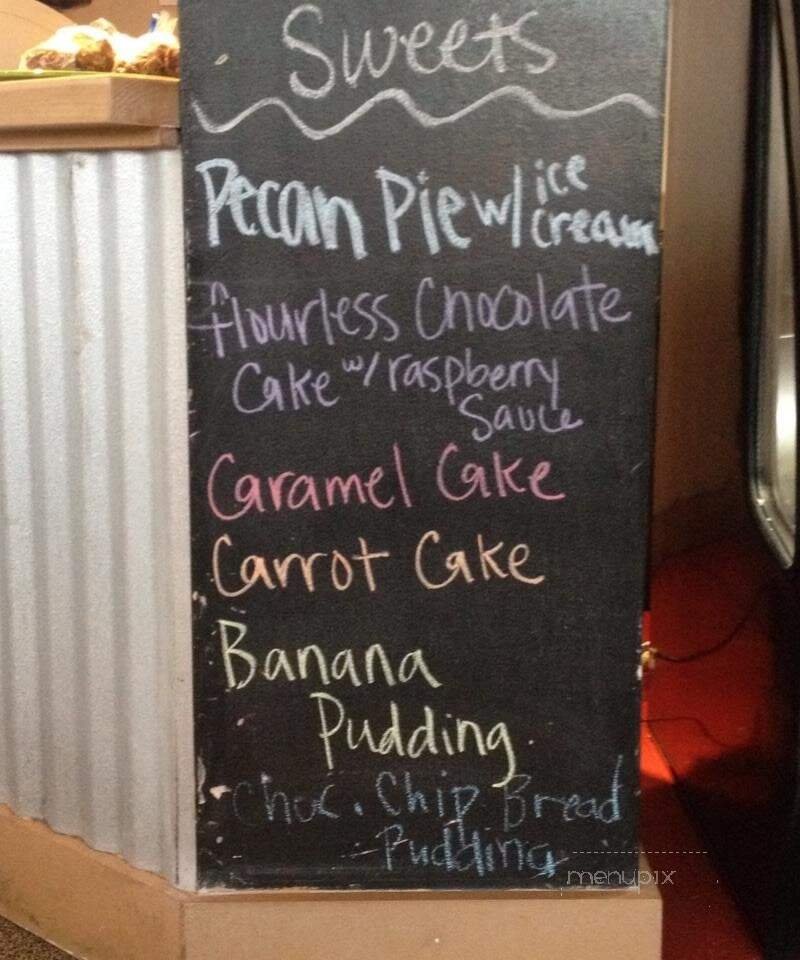 Sweets
Pecan Pie w/ ice cream
flourless Chocolate
Cake w/ raspberry
Sauce
Caramel Cake
Carrot Cake
Banana
Pudding
Choc. Chip Bread
Pudding
menupix